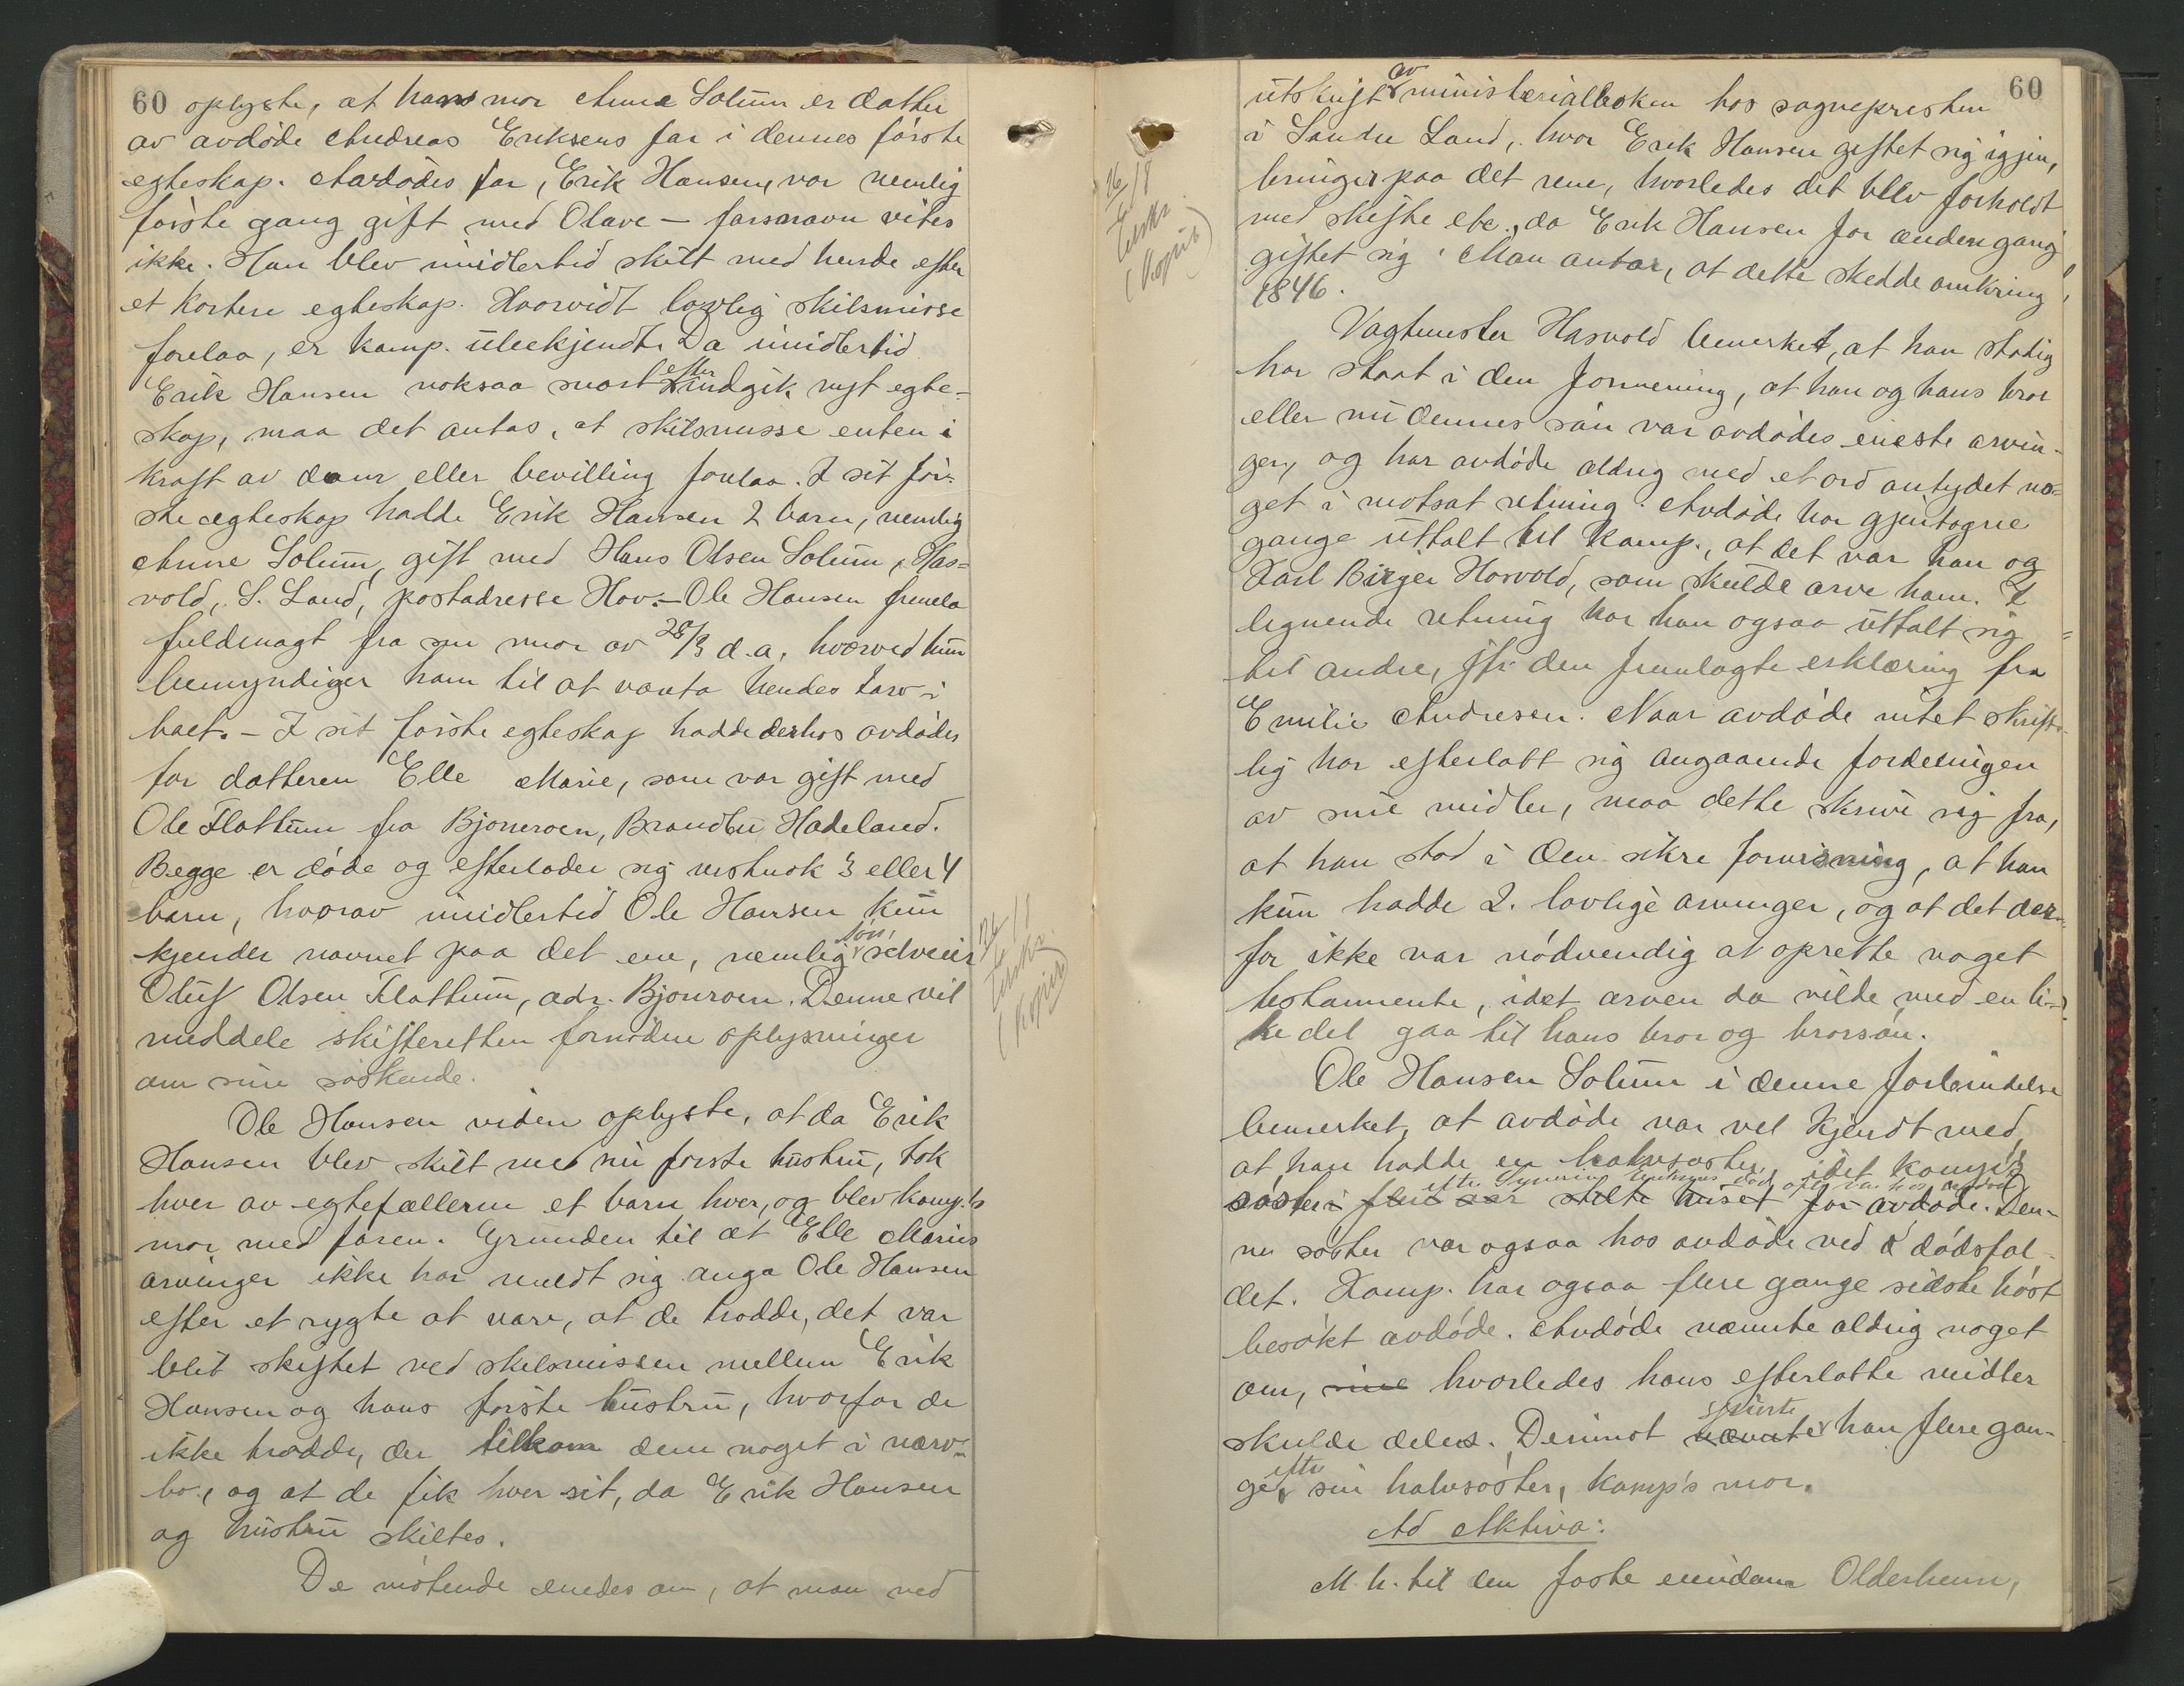 60 oplyste, at hans mor Anne Solum er datter
av avdöde Andreas Eriksens far i dennes förste
egteskap. Avdödes far, Erik Hansen, var nemlig
förste gang gift med Olave — farsnavn vites
ikke. Han blev imidlertid skilt med hende efter
et kortere egteskap. Hvorvidt lovlig skilsmisse
forelaa, er komp. ubekjendt. Da imidlertid
Erik Hansen noksaa snart efter indgik nyt egte-
skap, maa det antas, at skilsmisse enten i
kraft av dom eller bevilling forelaa. I sit för-
ste egteskap hadde Erik Hansen 2 barn, nemlig
Anne Solum, gift med Hans Olsen Solum, Has-
vold, S. Land, postadresse Hov. — Ole Hansen fremla
fuldmagt fra sin mor av 28/3 d.a., hvorved hun
bemyndiger ham til at vareta hendes tarv i
boet. — I sit förste egteskap hadde derhos avdödes
far datteren Elle Marie, som var gift med
Ole Flattum fra Bjoneroen, Brandbu, Hadeland.
Begge er döde og efterlader sig visnok 3 eller 4
barn, hvorav imidlertid Ole Hansen kun
kjender navnet paa det ene, nemlig sön, selveier
Oluf Olsen Flattum, adr. Bjoneroen. Denne vil
meddele skifteretten fornödne oplysninger
om sine söskende.
Ole Hansen viden oplyste, at da Erik
Hansen blev skilt med sin förste hustru, tok
hver av egtefællerne et barn hver, og blev komp.'s
mor med faren. Grunden til at Elle Maries
arvinger ikke har meldt sig anga Ole Hansen
efter et rygte at være, at de trodde, det var
blit skiftet ved skilsmissen mellem Erik
Hansen og hans förste hustru, hvorfor de
ikke trodde, der tilkom dem noget i nærv.
bo, og at de fik hver sit, da Erik Hansen
og hustru skiltes.
De mötende enedes om, at man ved
(kopiert)
60
utskrift av ministerialboken hos sognepresten
i Söndre Land, hvor Erik Hansen giftet sig igjen,
bringer paa det rene, hvorledes det blev forholdt
med skifte etc., da Erik Hansen for anden gang
giftet sig. Man antar, at dette skedde omkring
1846.
Vagtmester Hasvold bemerket, at han stadig
har staat i den formening, at han og hans bror
eller nu dennes sön var avdödes eneste arvin-
ger, og har avdöde aldrig med et ord antydet no-
get i motsat retning. Avdöde har gjentagne
gange uttalt til komp., at det var han og
Karl Birger Hasvold, som skulde arve ham. I
lignende retning har han ogsaa uttalt sig
til andre, jfr. den fremlagte erklæring fra
Emilie Andresen. Naar avdöde intet skrift-
lig har efterlatt sig angaaende fordelingen
av sine midler, maa dette skrive sig fra,
at han stod i den sikre formening, at han
kun hadde 2. lovlige arvinger, og at det der-
for ikke var nödvendig at oprette noget
testamente, idet arven da vilde med en li-
ke del gaa til hans bror og brorsön.
Ole Hansen Solum i denne forbindelse
bemerket, at avdöde var vel kjendt med,
at han hadde en halvsöster, idet komp's
söster i flere aar stelte huset for avdöde. Den-
ne söster var ogsaa hos avdöde ved dödsfal-
det. Komp. har ogsaa flere gange sidste höst
besökt avdöde. Avdöde nævnte aldrig noget
om, sine hvorledes hans efterlatte midler
skulde deles. Derimot nævnte spurte han flere gan-
ger efter sin halvsöster, komp's mor.
Ad Aktiva:
M.h. til den faste eiendom Olderheim,